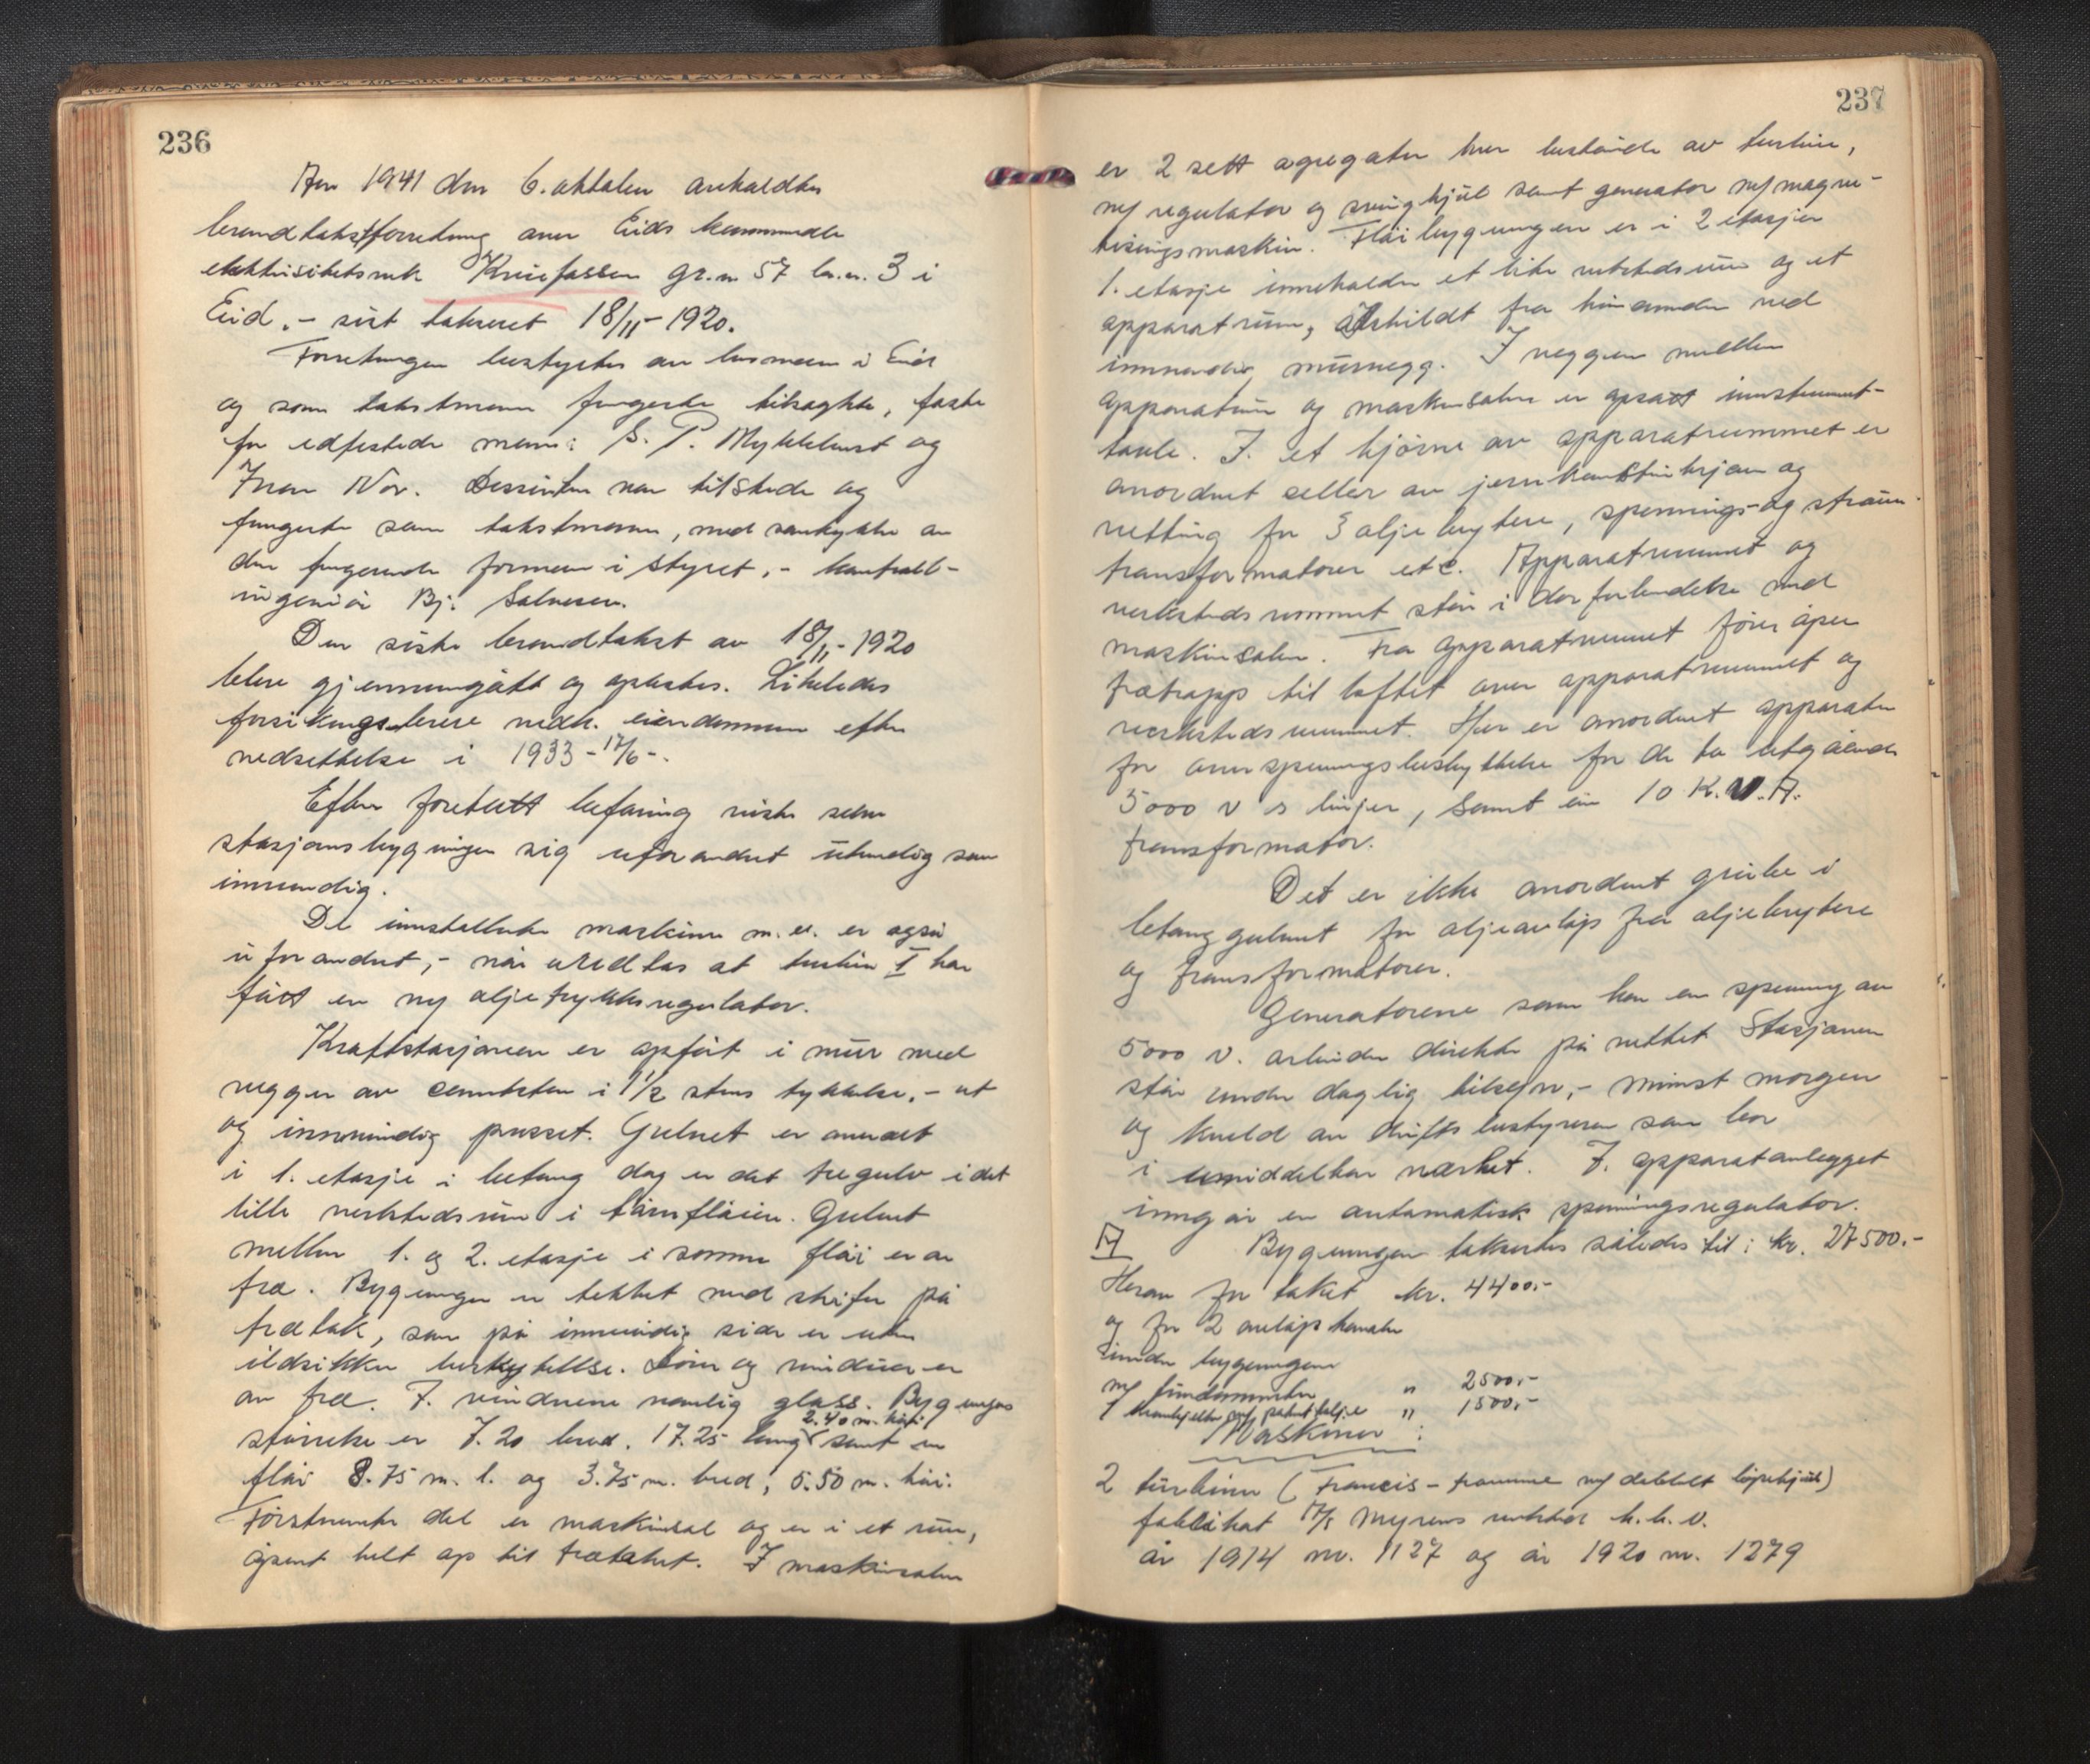 236
Aar 1941 den 6. oktober avholdtes
brandtakstforretning over Eids kommunale
elektrisitetsverk Kviefossen gr.n. 57 br.n. 3 i
Eid. - sist taksert 18/11-1920.
Forretningen bestyrtes av lensmann i Eid
og som takstmenn fungerte tilsagte, faste
før edfestede menn: S. P. Myklebust og
Ivar Nor. Dessuten var tilstede og
fungerte som takstmann, med samtykke av
den fungerende formann i styret, - kontroll-
ingeniör Bj. Salvesen.
Den siste brandtakst av 18/11-1920
blev gjennemgått og oplæstes. Likeledes
forsikringsbevis vedk. eiendommen efter
nedsettelse i 1933 - 17/6 -.
Efter foretatt befaring viste selve
stasjonsbygningen sig uforandret utvendig som
innvendig.
De installerte maskiner m. v. er også
uforandret, - når undtas at turbin I har
fått en ny oljetrykksregulator.
Kraftstasjonen er opført i mur med
vegger av cementsten i 1½ stens tykkelse, - ut
og innvendig pusset. Gulvet er overalt
i 1. etasje i betong dog er det tregulv i det
lille verkstedsrum i tårnfløien. Gulvet
mellem 1. og 2. etasje i samme fløi er av
træ. Bygningen er tekket med skifer på
trætak, som på innvendig side er uten
ildsikker beskyttelse. Dører og vinduer er
av træ. I vinduene vanlig glass. Bygningens
2.40 m. høi.
størrelse er 7.20 bred, 17.25 lang samt en
fløi 8.75 m. l. og 3.75 m. bred, 5.50 m. høi.
Førstnevnte del er maskinsal og er i et rum,
åpent helt op til trætaket. I maskinsalen
237
er 2 sett agregater hver bestående av turbin,
m/ regulator og svinghjul samt generator m/ magne-
tisingsmaskin. Fløibygningen er i 2 etasjer
1. etasje inneholder et lite verkstedsrum og et
apparatrum, adskildt fra hinannen ved
innvendig murvegg. I veggen mellem
apparatrum og maskinsalen er opsatt instrument-
tavle. I et hjørne av apparatrummet er
anordnet celler av jernkonstruksjon og
netting for 3 oljebrytere, spennings- og strøm-
transformatorer etc. Apparatrummet og
verkstedsrommet står i dør forbindelse med
maskinsalen. Fra apparatrummet fører åpen
trætrapp til loftet over apparatrummet og
verkstedsrummet. Her er anordnet apparater
for overspenningsbeskyttelse for de to utgående
5000 v s linjer, samt en 10 K.V.A.
transformator.
Det er ikke anordnet grube i
betonggulvet for oljeavløp fra oljebrytere
og transformatorer.
Generatorene som har en spenning av
5000 v. arbeider direkte på nettet Stasjonen
står under daglig tilsyn, - minst morgen
og kveld av driftsbestyreren som bor
i umiddelbar nærhet. I apparatanlegget
inngår en automatisk spenningsregulator.
A Bygningen takseres således til: kr. 27500.-
Herav for taket kr. 4400.-
og for 2 avløpskanaler
under bygningen
m/ fundamenter " 2500.-
1 kranbjelke m/ patent talje " 1500.-
Maskiner:
2 turbiner (Francis - tromme m/ dobbelt løpehjul)
fabrikat A/S Myrens verksted h. h. v.
år 1914 nr. 1127 og år 1920 nr. 1279